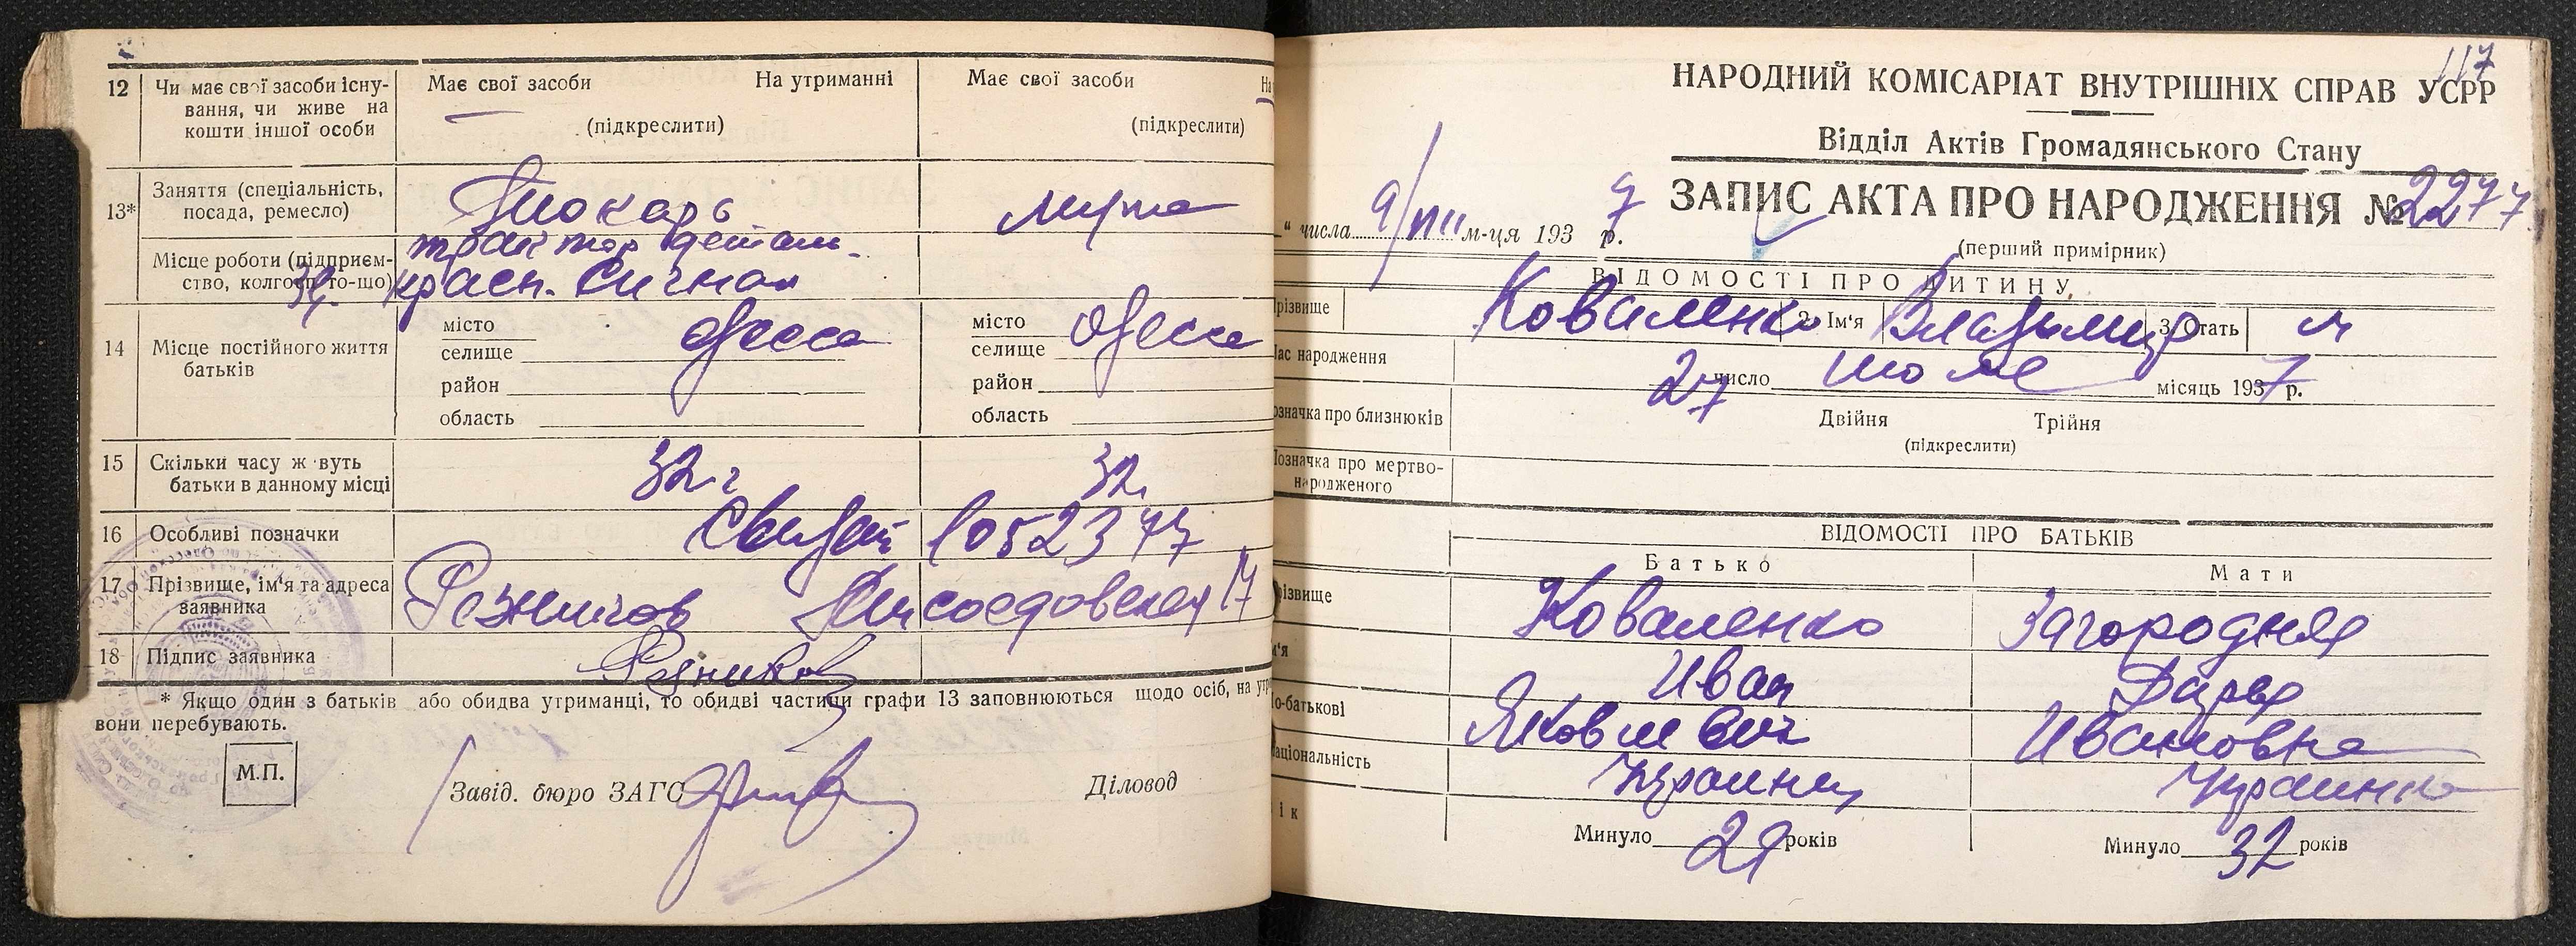 12 Чи має свої засоби існу-
вання, чи живе на
кошти іншої особи
Має свої засоби На утриманні
(підкреслити)
Має свої засоби
(підкреслити)
13* Заняття (спеціальність,
посада, ремесло)
Токарь
Місце роботи (підприєм-
ство, колгосп то-що)
красн. Сигнал
14 Місце постійного життя
батьків
місто Одесса
селище
район
область
місто Одесса
селище
район
область
15 Скільки часу ж вуть
батьки в данному місці
32 г
32
16 Особливі позначки
17 Прізвище, ім'я та адреса
заявника
18 Підпис заявника
Резников
* Якщо один з батьків або обидва утриманці, то обидві частини графи 13 заповнюються щодо осіб, на
вони перебувають.
М.П.
Завід. бюро ЗАГС
Діловод
117
НАРОДНИЙ КОМІСАРІАТ ВНУТРІШНІХ СПРАВ УСРР
Відділ Актів Громадянського Стану
ЗАПИС АКТА ПРО НАРОДЖЕННЯ № 2277
" числа 9/VIII м-ця 1937 р.
(перший примірник)
ВІДОМОСТІ ПРО ДИТИНУ
різвище Коваленко 2. Ім'я Владимир 3. Стать м
ас народження 27 число июля місяць 1937 р.
означка про близнюків Двійня Трійня
(підкреслити)
означка про мертво-
народженого
ВІДОМОСТІ ПРО БАТЬКІВ
Батько Мати
різвище Коваленко Загородняя
м'я Иван Дарья
о-батькові Яковлевич Ивановна
аціональність Украинец Украинка
ік Минуло 29 років Минуло 32 років